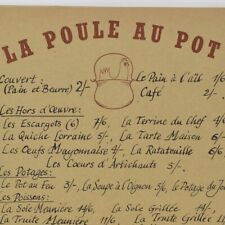 LA POULE AU POT
Couvert : 2/- Le Pain à l'ail 1/6
(Pain et Beurre) Café 2/-
Les Hors d'Œuvre:
Les Escargots (6) 7/6, La Terrine du Chef 4/6
La Quiche Lorraine 5/-, La Tarte Maison 6/
Les Œufs Mayonnaise 4/-, La Ratatouille 6/
Les Cœurs d'Artichauts 5/-
Les Potages:
Le Pot au Feu 3/-, La Soupe à l'Ognon 5/-, Le Potage du Jo
Les Poissons:
La Sole Meunière 14/6, La Sole Grillée 14/
La Truite Meunière 11/6, La Truite Grillée 11